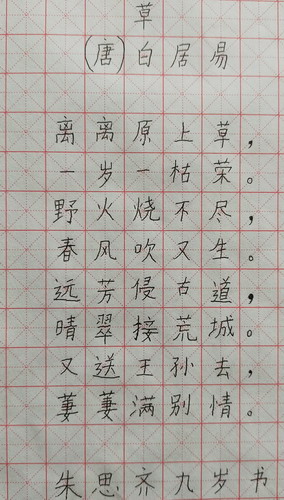 草
(唐)白居易
离离原上草,
一岁一枯荣。
野火烧不尽,
春风吹又生。
远芳侵古道,
晴翠接荒城。
又送王孙去,
萋萋满别情。
朱思齐九岁书